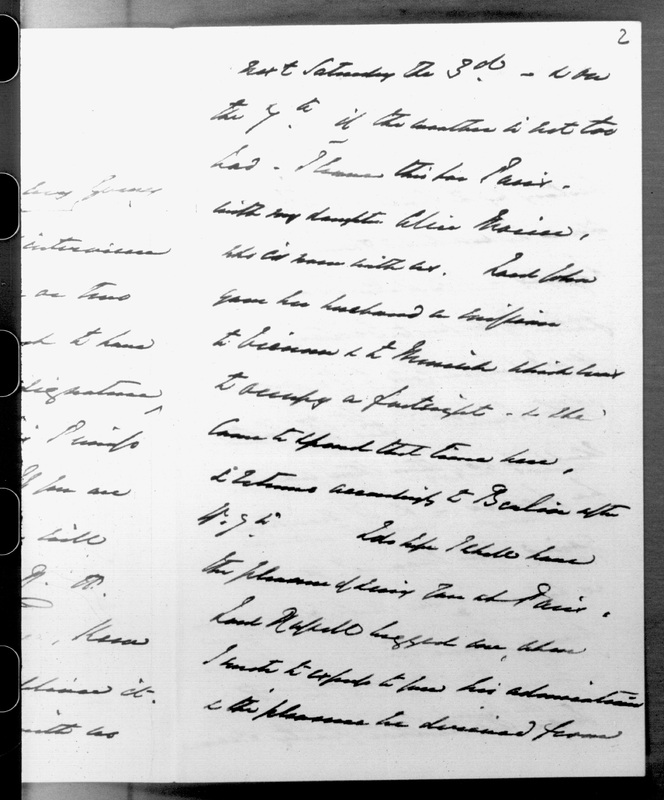 2
next Saturday the 3rd - & on
the 7th if the weather is not too
bad - I leave this for Paris.
with my daughter Alice
who is now with us. Lord John
gave her husband a mission
to Vienna & to Munich which was
to occupy a fortnight - & she
came to spend that time here,
& returns accordingly to Berlin after
ye 7th I do hope I shall have
the pleasure of seeing you at Paris.
Lord Russell begged me, when
I wrote to express to you his admiration
& the pleasure he derived from
interview
or two
to have
signature,
you are
will
it.
with us